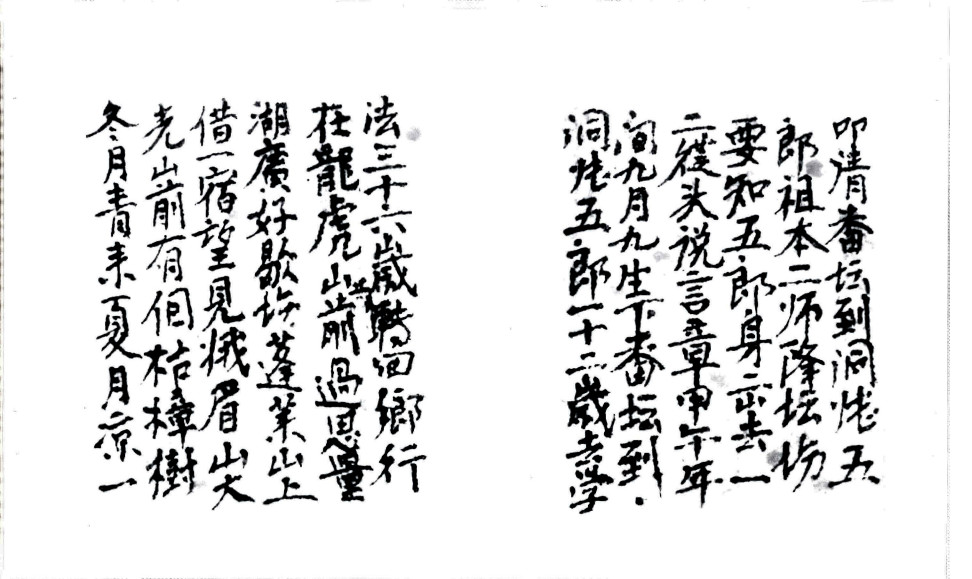 叩请畨坛到洞憷五
郎祖本二师降坛场
要知五郎身正去一
二從头说言章甲午年
间九月九生下畨坛到
洞憷五郎一十二歲去学
法三十六歲轉回鄉行
在龍虎山前過思量
湖廣好歇场蓬莱山上
借一宿望見峨眉山大
光山前有個枯樟樹
冬月青来夏月凉一